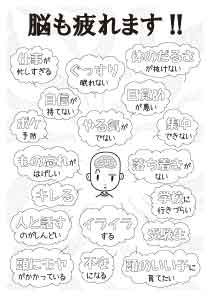 脳も疲れます!!
仕事が
忙しすぎる
ぐっすり
眠れない
体のだるさ
が抜けない
自信が
持てない
目覚めが
が悪い
ボケ
予防
やる気が
でない
集中
できない
もの忘れが
はげしい
落ち着きが
ない
キレる
学校に
行きづらい
人と話す
のがしんどい
イライラ
する
受験生
頭にモヤ
がかかっている
不安
になる
頭のいい子に
育てたい